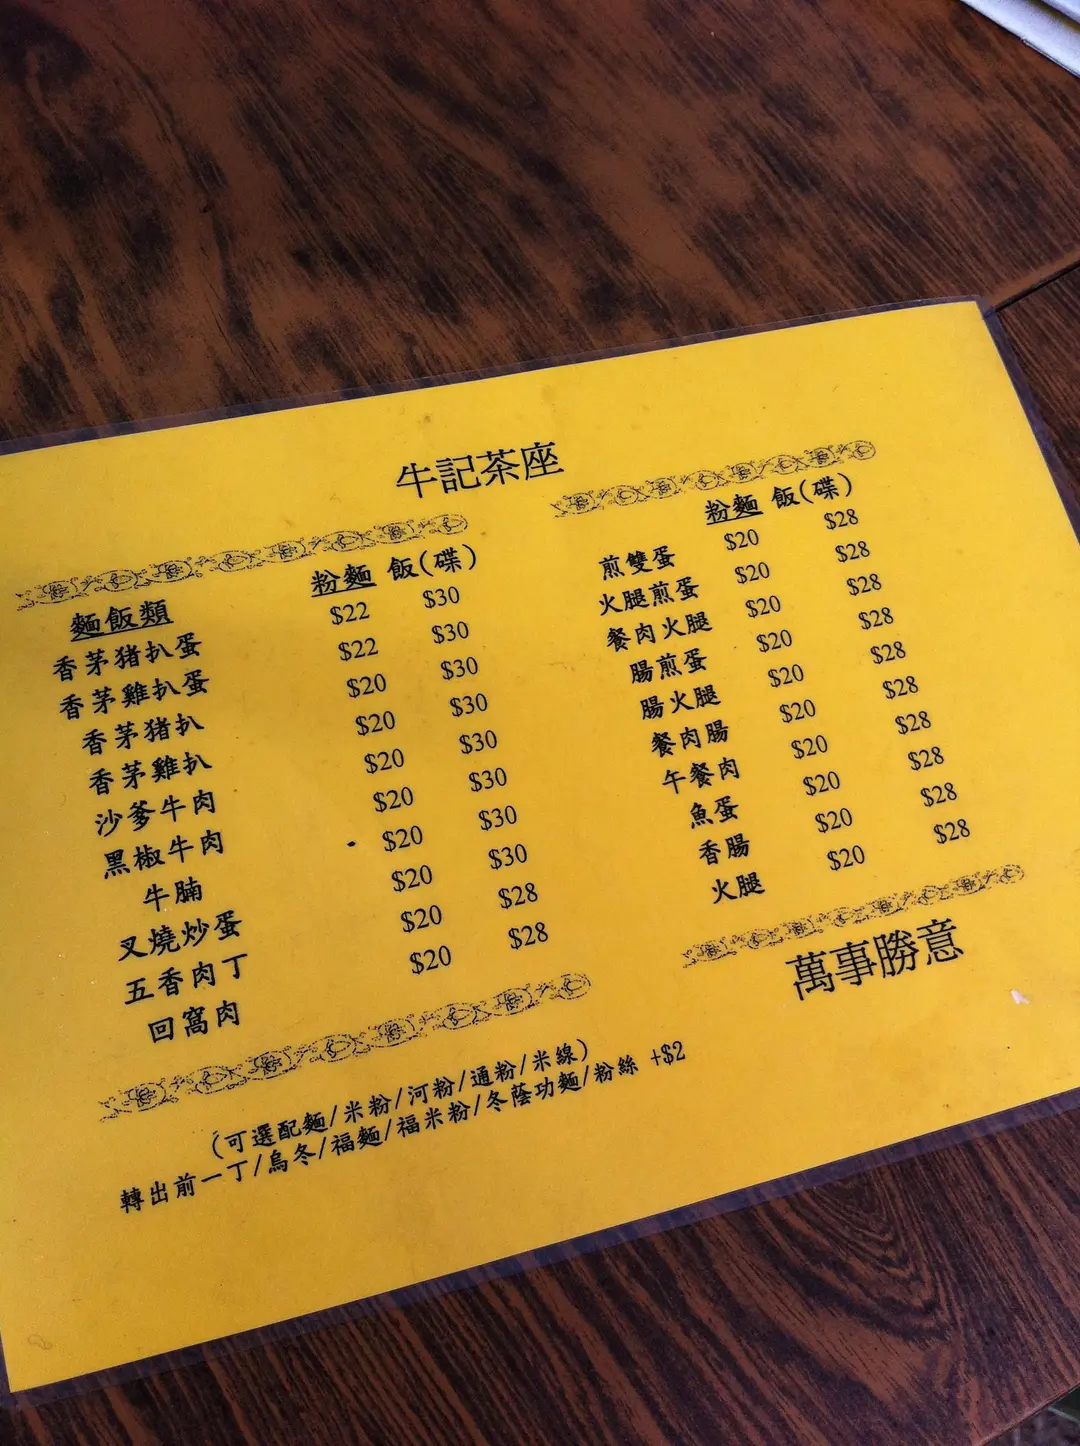 牛記茶座
麵飯類 粉麵 飯(碟)
香茅猪扒蛋 $22 $30
香茅雞扒蛋 $22 $30
香茅猪扒 $20 $30
香茅雞扒 $20 $30
沙爹牛肉 $20 $30
黑椒牛肉 $20 $30
牛腩 $20 $30
叉燒炒蛋 $20 $30
五香肉丁 $20 $28
回窩肉 $20 $28
粉麵 飯(碟)
煎雙蛋 $20 $28
火腿煎蛋 $20 $28
餐肉火腿 $20 $28
腸煎蛋 $20 $28
腸火腿 $20 $28
餐肉腸 $20 $28
午餐肉 $20 $28
魚蛋 $20 $28
香腸 $20 $28
火腿 $20 $28
萬事勝意
(可選配麵/米粉/河粉/通粉/米線)
轉出前一丁/烏冬/福麵/福米粉/冬蔭功麵/粉絲 +$2